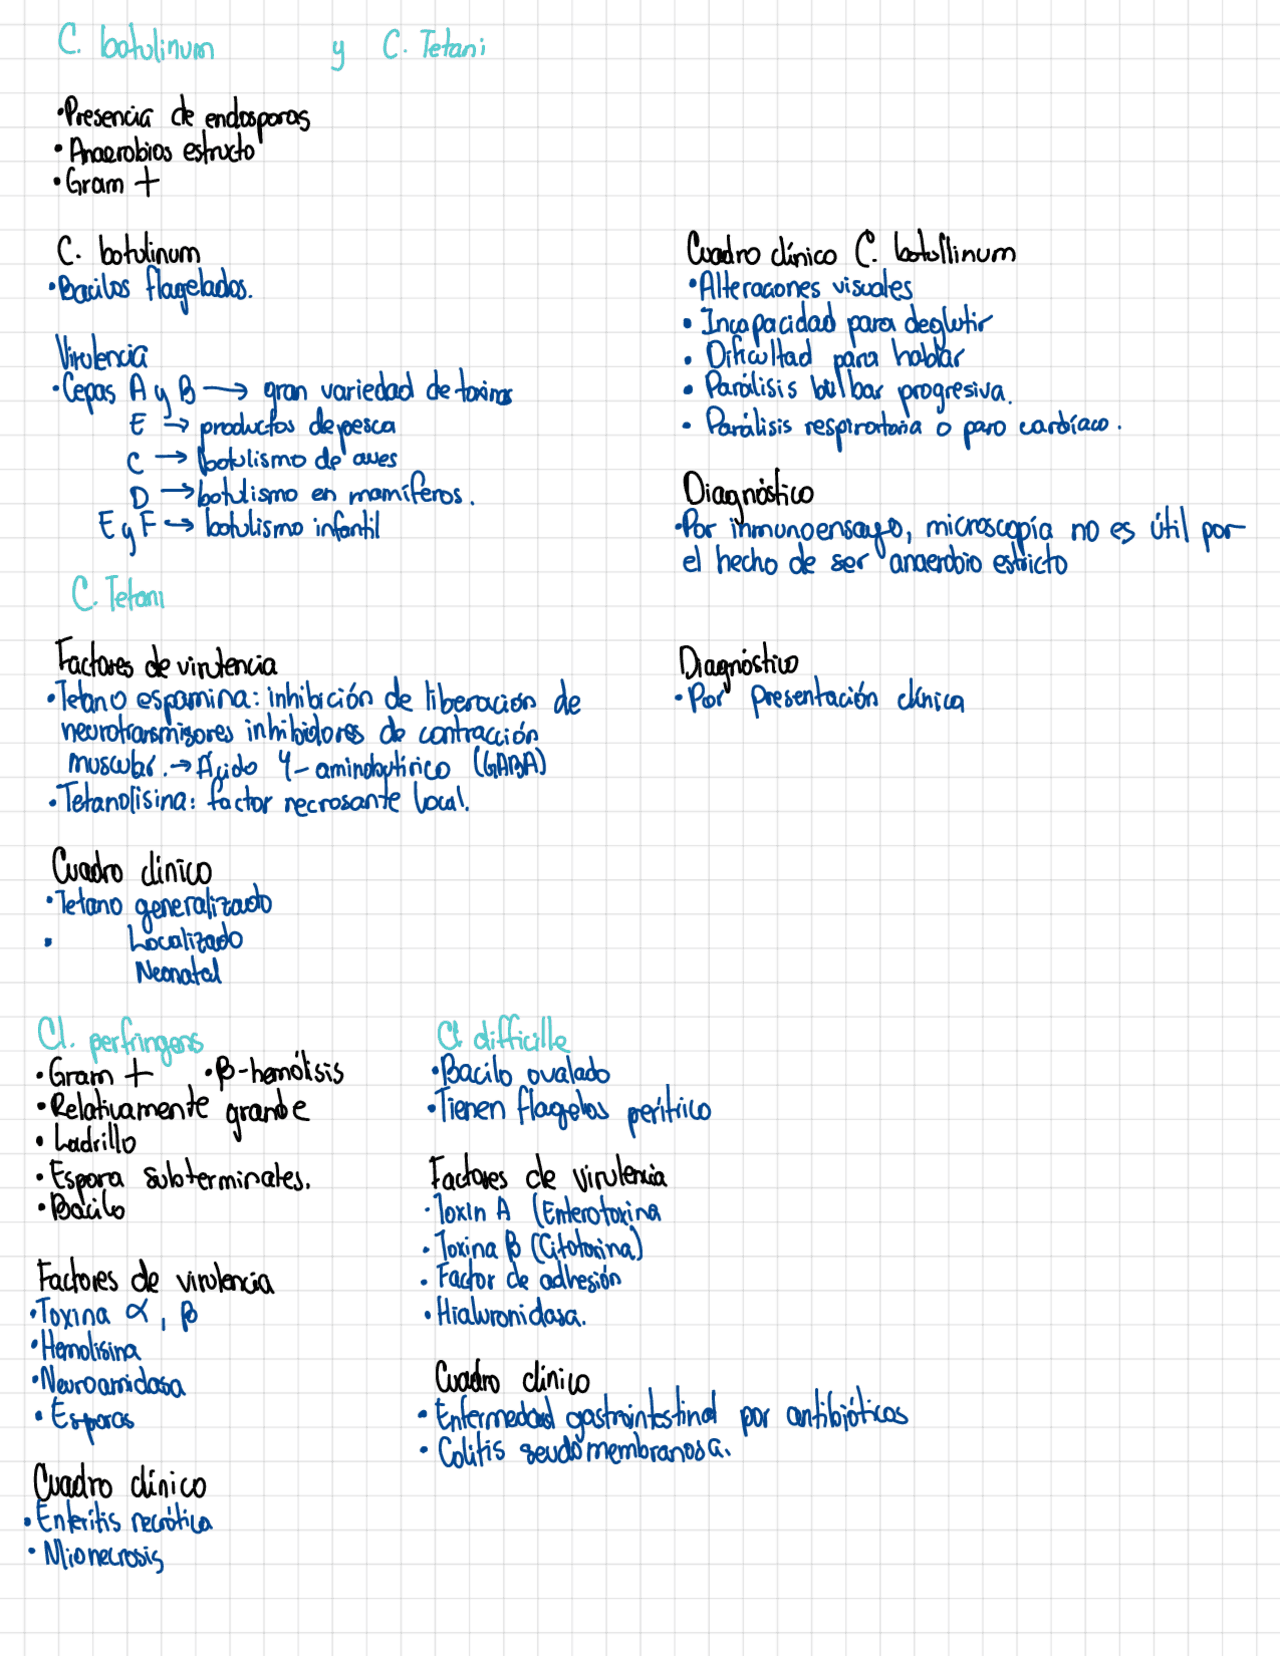 C. botulinum y C. Tetani
• Presencia de endosporas
• Anaerobios estructo
• Gram +
C. botulinum
• Bacilos flagelados.
Virulencia
• Cepas A y B → gran variedad de toxinas
E → productos de pesca
C → botulismo de aves
D → botulismo en mamíferos.
E y F → botulismo infantil
Cuadro clínico C. botullinum
• Alteraciones visuales
• Incapacidad para deglutir
• Dificultad para hablar
• Parálisis bulbar progresiva.
• Parálisis respirortoria o paro cardíaco.
Diagnóstico
• Por inmunoensayo, microscopía no es útil por
el hecho de ser anaerobio estricto
C. Tetani
Factores de virulencia
• Tetano espamina: inhibición de liberación de
neurotransmisores inhibidores de contracción
muscular. → Ácido 4-aminobutírico (GABA)
• Tetanolisina: factor necrosante local.
Diagnóstico
• Por presentación clínica
Cuadro clínico
• Tetano generalizado
• Localizado
Neonatal
Cl. perfringens
• Gram + • β-hemólisis
• Relativamente grande
• Ladrillo
• Espora subterminales.
• Bacilo
Factores de virulencia
• Toxina α, β
• Hemolisina
• Neuroamidasa
• Esporas
Cuadro clínico
• Enteritis necrótica
• Mionecrosis
Cl difficille
• Bacilo ovalado
• Tienen flagelos perítrico
Factores de virulencia
• Toxin A (Enterotoxina
• Toxina B (Citotoxina)
• Factor de adhesión
• Hialuronidasa.
Cuadro clínico
• Enfermedad gastrointestinal por antibióticos
• Colitis seudomembranosa.